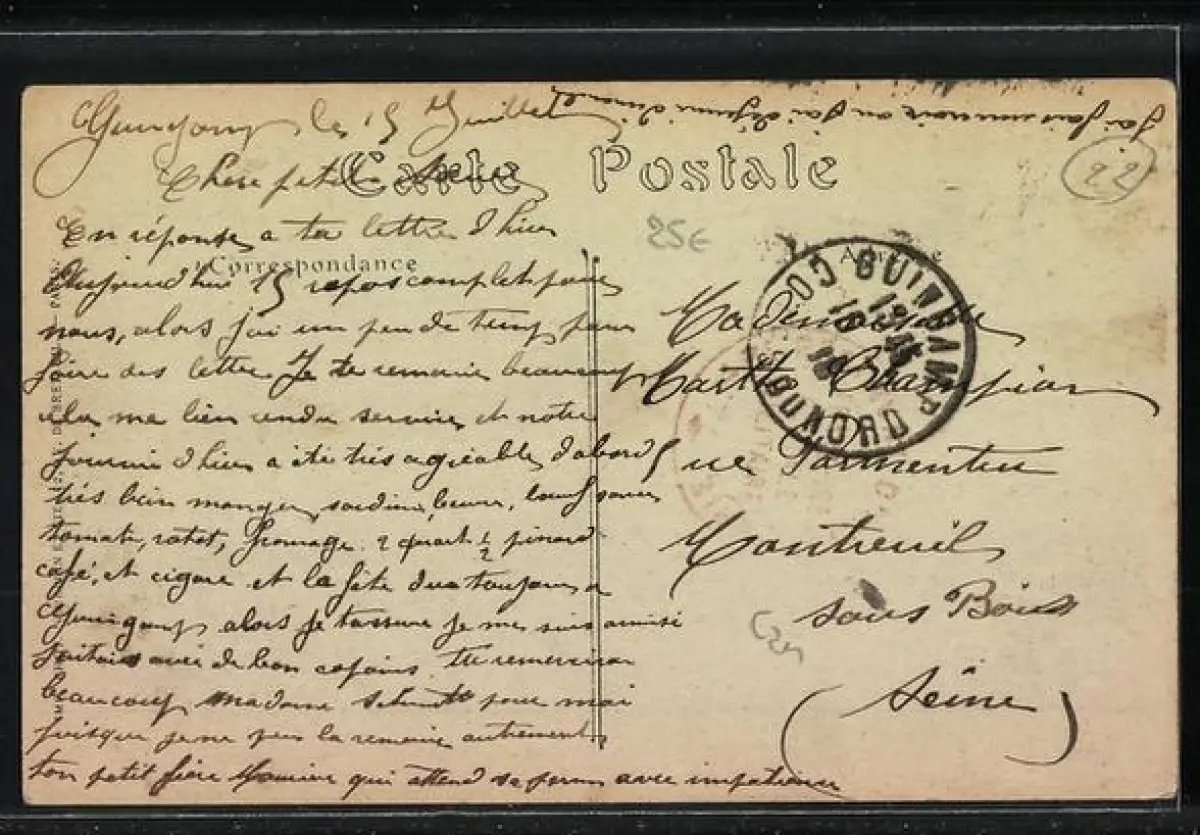 Guingamp le 15 Juillet
Chère petite Soeur
Carte Postale
En réponse a ta lettre d'hier
Correspondance
Aujourd'hui 15 repos complet pour
nous, alors j'ai un peu de temp pour
faire des lettre. Je te remercie beaucoup
me bien rendu service et notre
journée d'hier a été très agréable, d'abord
très bien manger, sardine, beurre, boeuf sauce
tomate, rotet, fromage. 2 quart ½ pinard
café, et cigare et la fête toujours a
Guingamp alors je t'assure je me suis amusé
avec de bon copains. Tu remercieras
beaucoup Madame pour moi
puisque je ne peu la remercier autrement
ton petit frère Maurice qui attend sa perm avec impatience
22
25€
GUINGAMP
COTES DU NORD
Mademoiselle
Marthe Champion
5 rue Parmentier
Montreuil
sous Bois
(Seine)